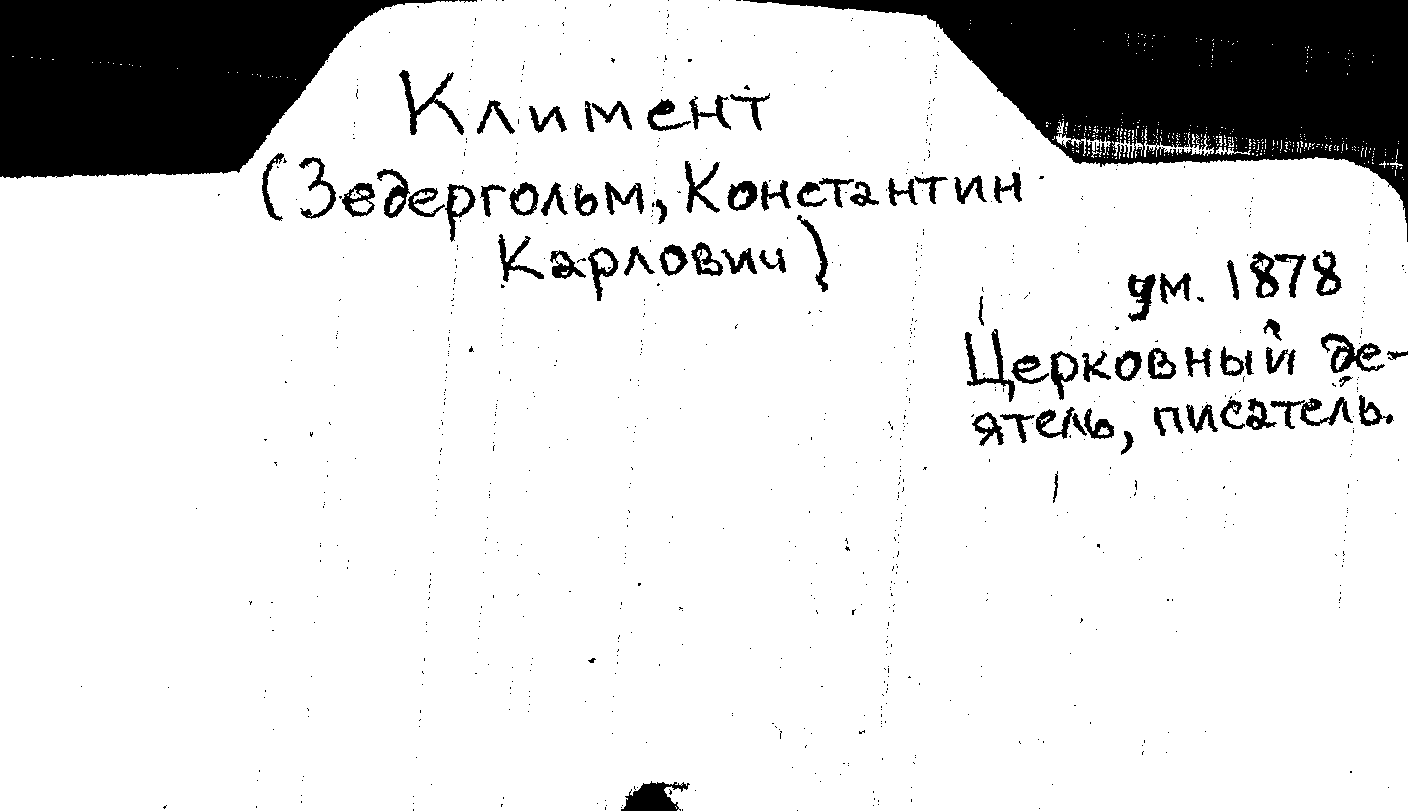 Климент
(Зедергольм, Константин
Карлович)
ум. 1878
Церковный де-
ятель, писатель.